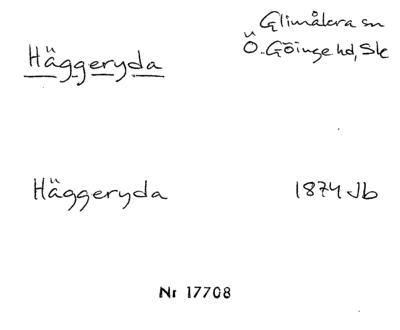 Glimåkra sn
Häggeryda Ö. Göinge hd, Sk
Häggeryda 1874 Jb
Nr 17708